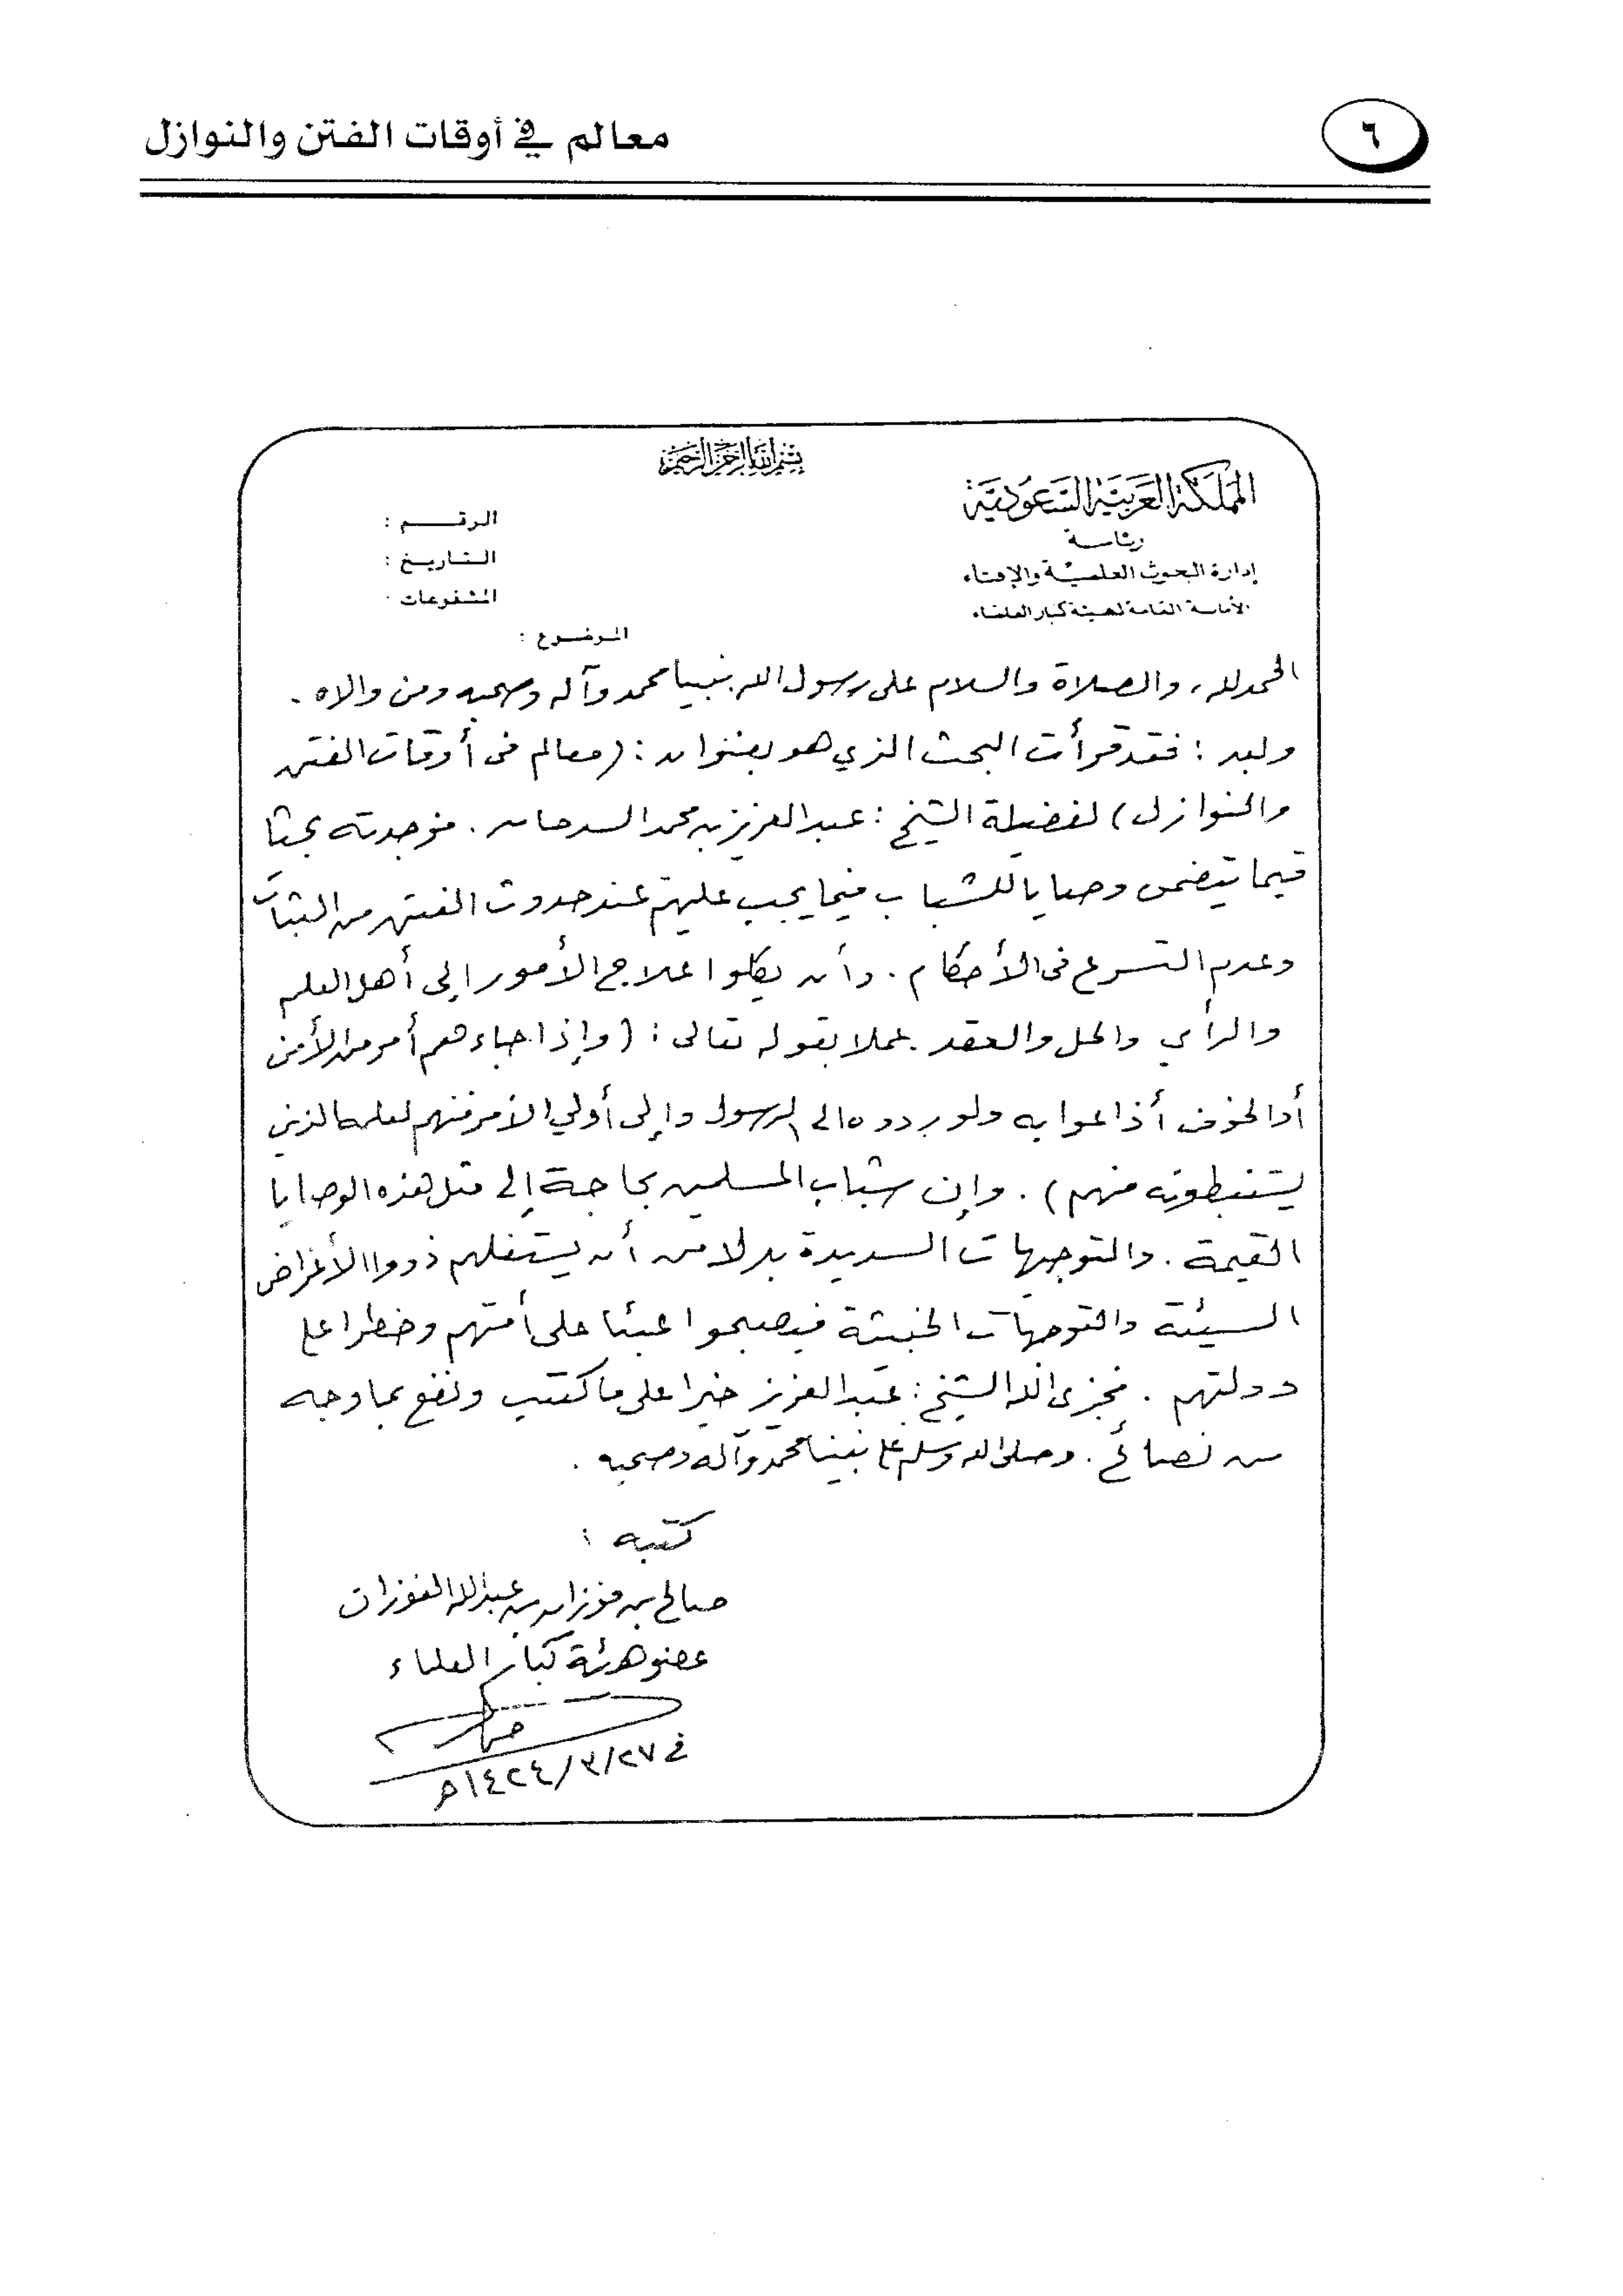 ٦
معالم في أوقات الفتن والنوازل
بسم الله الرحمن الرحيم
المملكة العربية السعودية
رئاسة
إدارة البحوث العلمية والإفتاء
الأمانة العامة لهيئة كبار العلماء
الرقم :
التاريخ :
المشفوعات :
الموضوع :
الحمد لله، والصلاة والسلام على رسول الله نبينا محمد وآله وصحبه ومن والاه .
وبعد : فقد قرأت البحث الذي هو بعنوان : (معالم في أوقات الفتن
والنوازل) لفضيلة الشيخ : عبد العزيز بن محمد السدحان . فوجدته بحثا
قيما يتضمن وصايا للشباب فيما يجب عليهم عند حدوث الفتن من الثبات
وعدم التسرع في الأحكام . وأن يكلوا علاج الأمور إلى أهل العلم
والرأي والحل والعقد . عملا بقوله تعالى : (وإذا جاءهم أمر من الأمن
أو الخوف أذاعوا به ولو ردوه إلى الرسول وإلى أولي الأمر منهم لعلمه الذين
يستنبطونه منهم) . وإن شباب المسلمين بحاجة إلى مثل هذه الوصايا
القيمة . والتوجيهات السديدة بدلا من أن يستغلهم ذووا الأغراض
السيئة والتوجهات الخبيثة فيصبحوا عبئا على أمتهم وخطرا على
دولتهم . فجزى الله الشيخ : عبد العزيز خيرا على ما كتب ونفع بما وجه
من نصائح . وصلى الله وسلم على نبينا محمد وآله وصحبه .
كتبه :
صالح بن فوزان بن عبد الله الفوزان
عضو هيئة كبار العلماء
في ٢٧/٣/١٤٢٤هـ